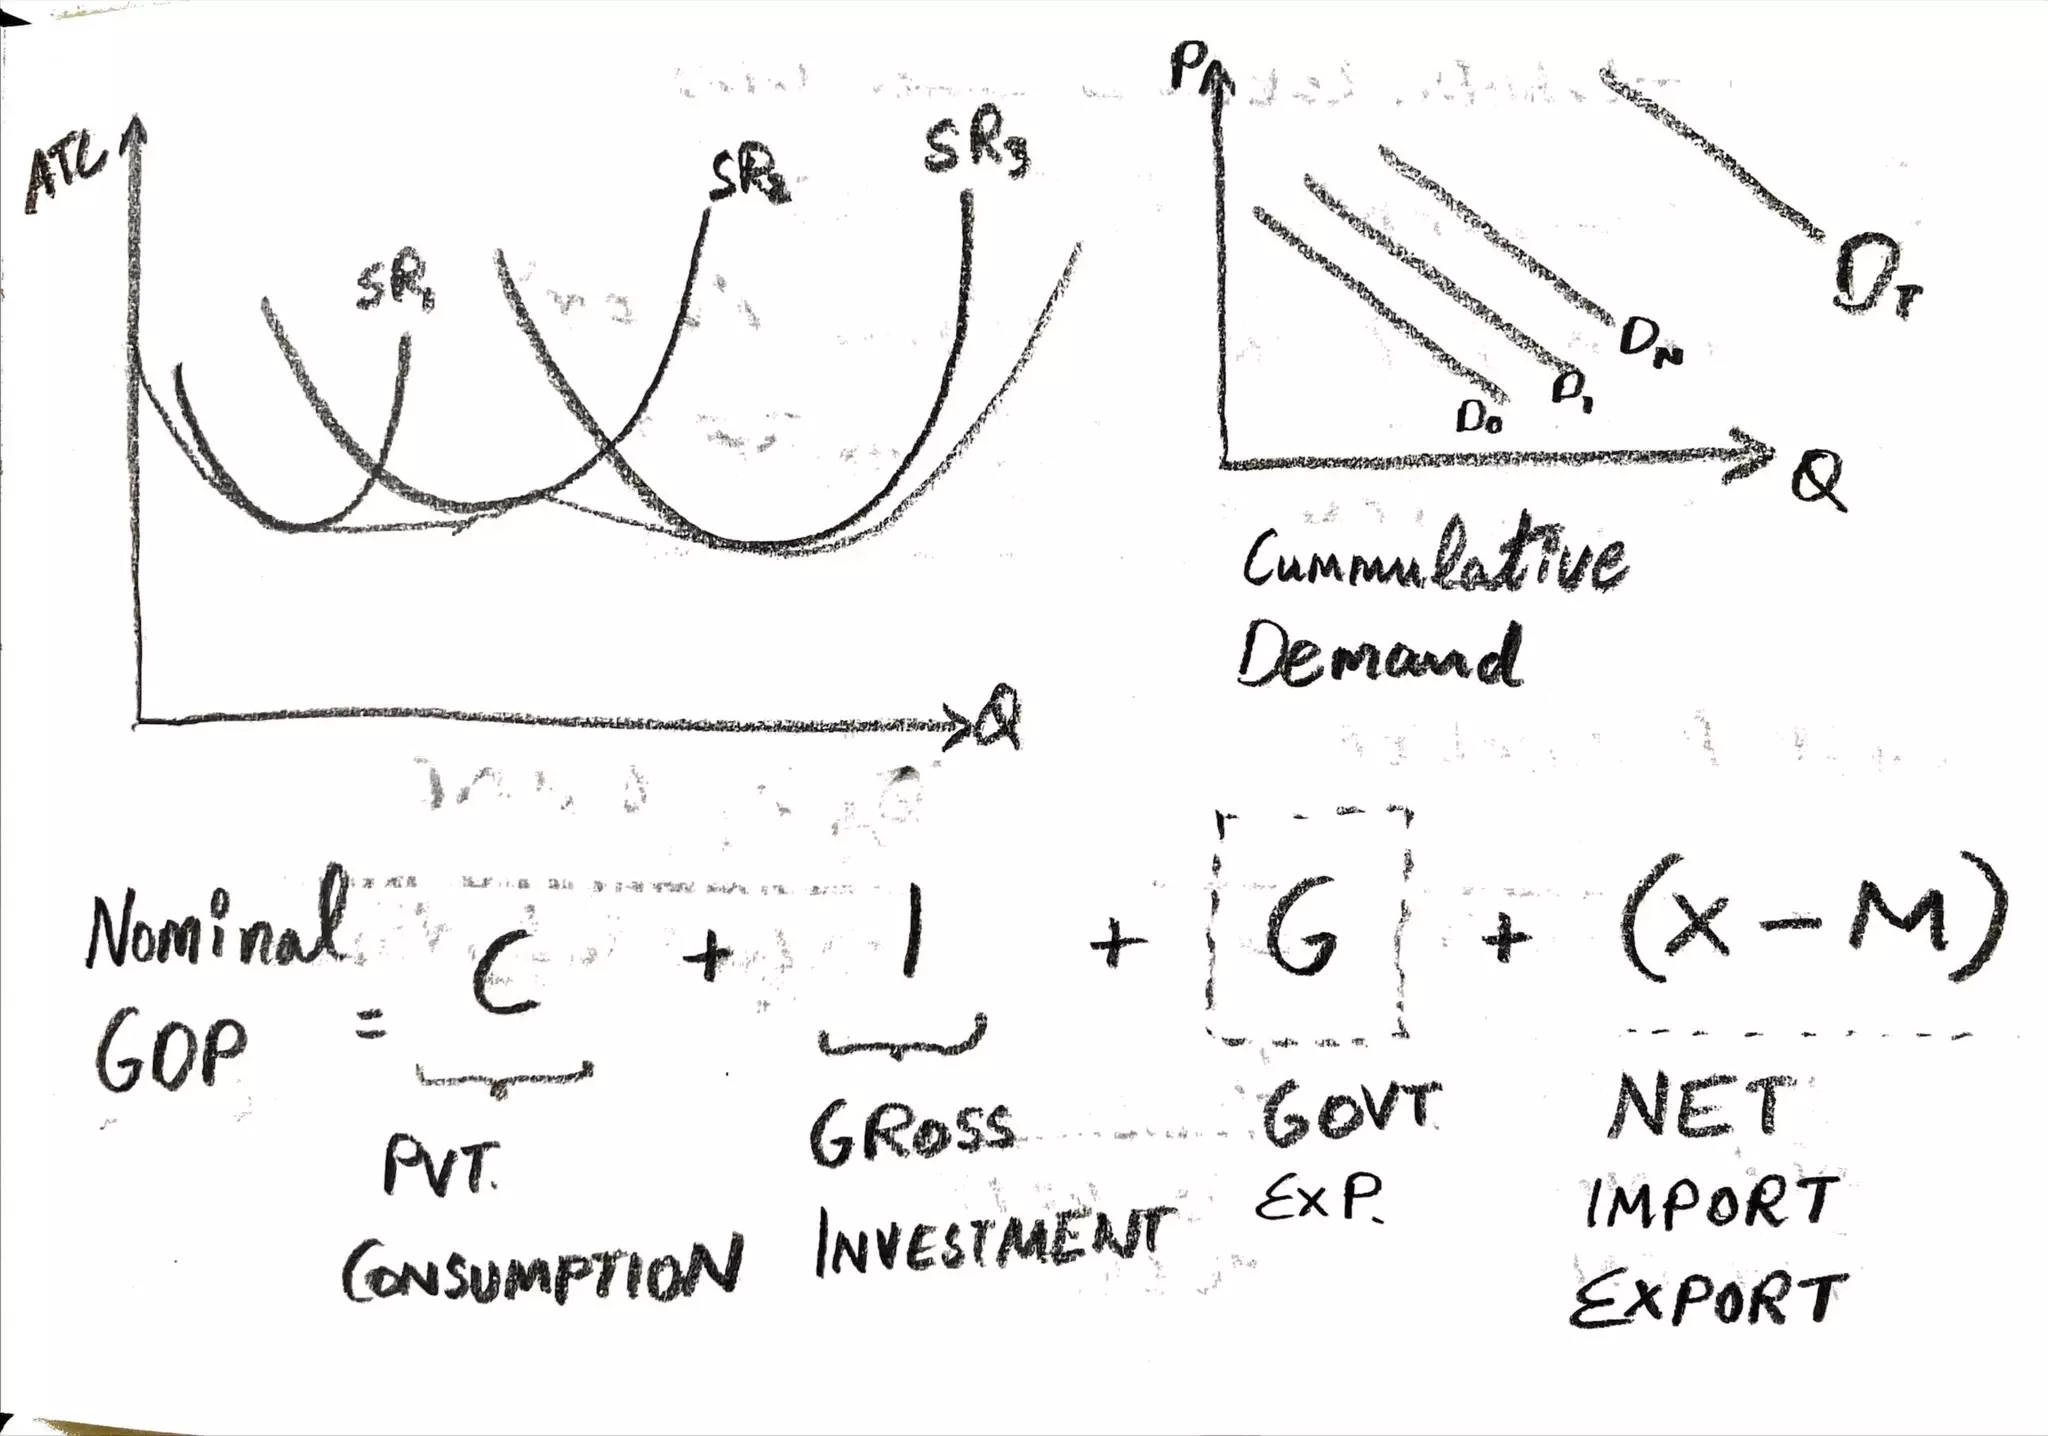 ATC
SR₁
SR₂
SR₃
Q
P
D₀
D₁
Dₙ
Dₜ
Q
Cummulative
Demand
Nominal
GDP = C + I + G + (X - M)
PVT.
CONSUMPTION
GROSS
INVESTMENT
GOVT
EXP.
NET
IMPORT
EXPORT